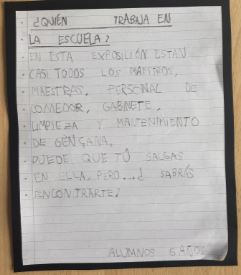 ¿QUIÉN TRABAJA EN
LA ESCUELA?
EN ESTA EXPOSICIÓN ESTÁN
CASI TODOS LOS MAESTROS,
MAESTRAS, PERSONAL DE
COMEDOR, GABINETE,
LIMPIEZA Y MANTENIMIENTO
DE
PUEDE QUE TÚ SALGAS
EN ELLA, PERO...¿ SABRÁS
ENCONTRARTE?
ALUMNOS 5 AÑOS